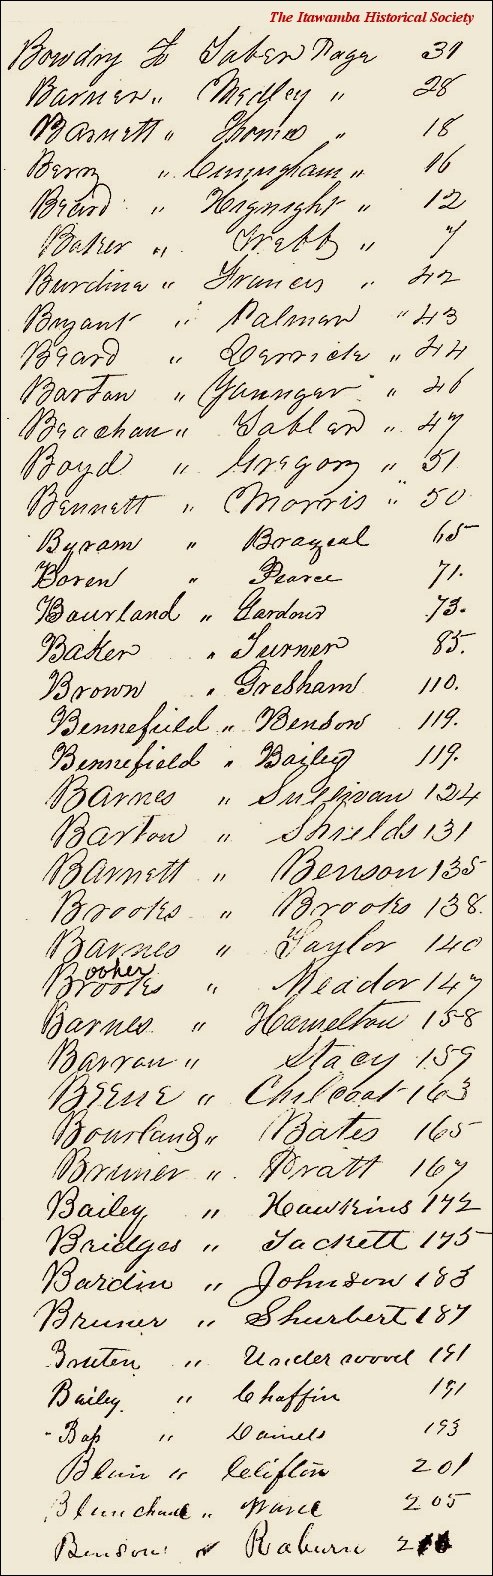 The Itawamba Historical Society
Bowdry To Taber Page 31
Barner " Medley " 28
Barnett " Thomas " 18
Berry " Cuningham " 16
Beard " Highnight " 12
Baker " Webb " 7
Burdine " Francis " 42
Bryant " Palmer " 43
Beard " Derrick " 44
Barton " Younger " 46
Beachan " Tabler " 47
Boyd " Gregory " 51
Bennett " Morris " 50
Byram " Brazeal 65
Boren " Pearce 71.
Bourland " Gardner 73.
Baker " Turner 85.
Brown " Gresham 110.
Bennefield " Benson 119.
Bennefield " Bailey 119.
Barnes " Sullivan 124
Barton " Shields 131
Barnett " Benson 135
Brooks " Brooks 138.
Barnes " Taylor 140
Booker
Brooks " Meador 147
Barnes " Hamelton 158
Barron " Stacy 159
Beene " Chilcoat 163
Bourland " Bates 165
Bruner " Pratt 167
Bailey " Hawkins 172
Bridges " Tackett 175
Bardin " Johnson 183
Bruner " Shurbert 187
Bruten " Underwood 191
Bailey " Chaffin 191
" Daniels 193
Blair " Clifton 201
Blanchard " Ware 205
Benson " Raburn